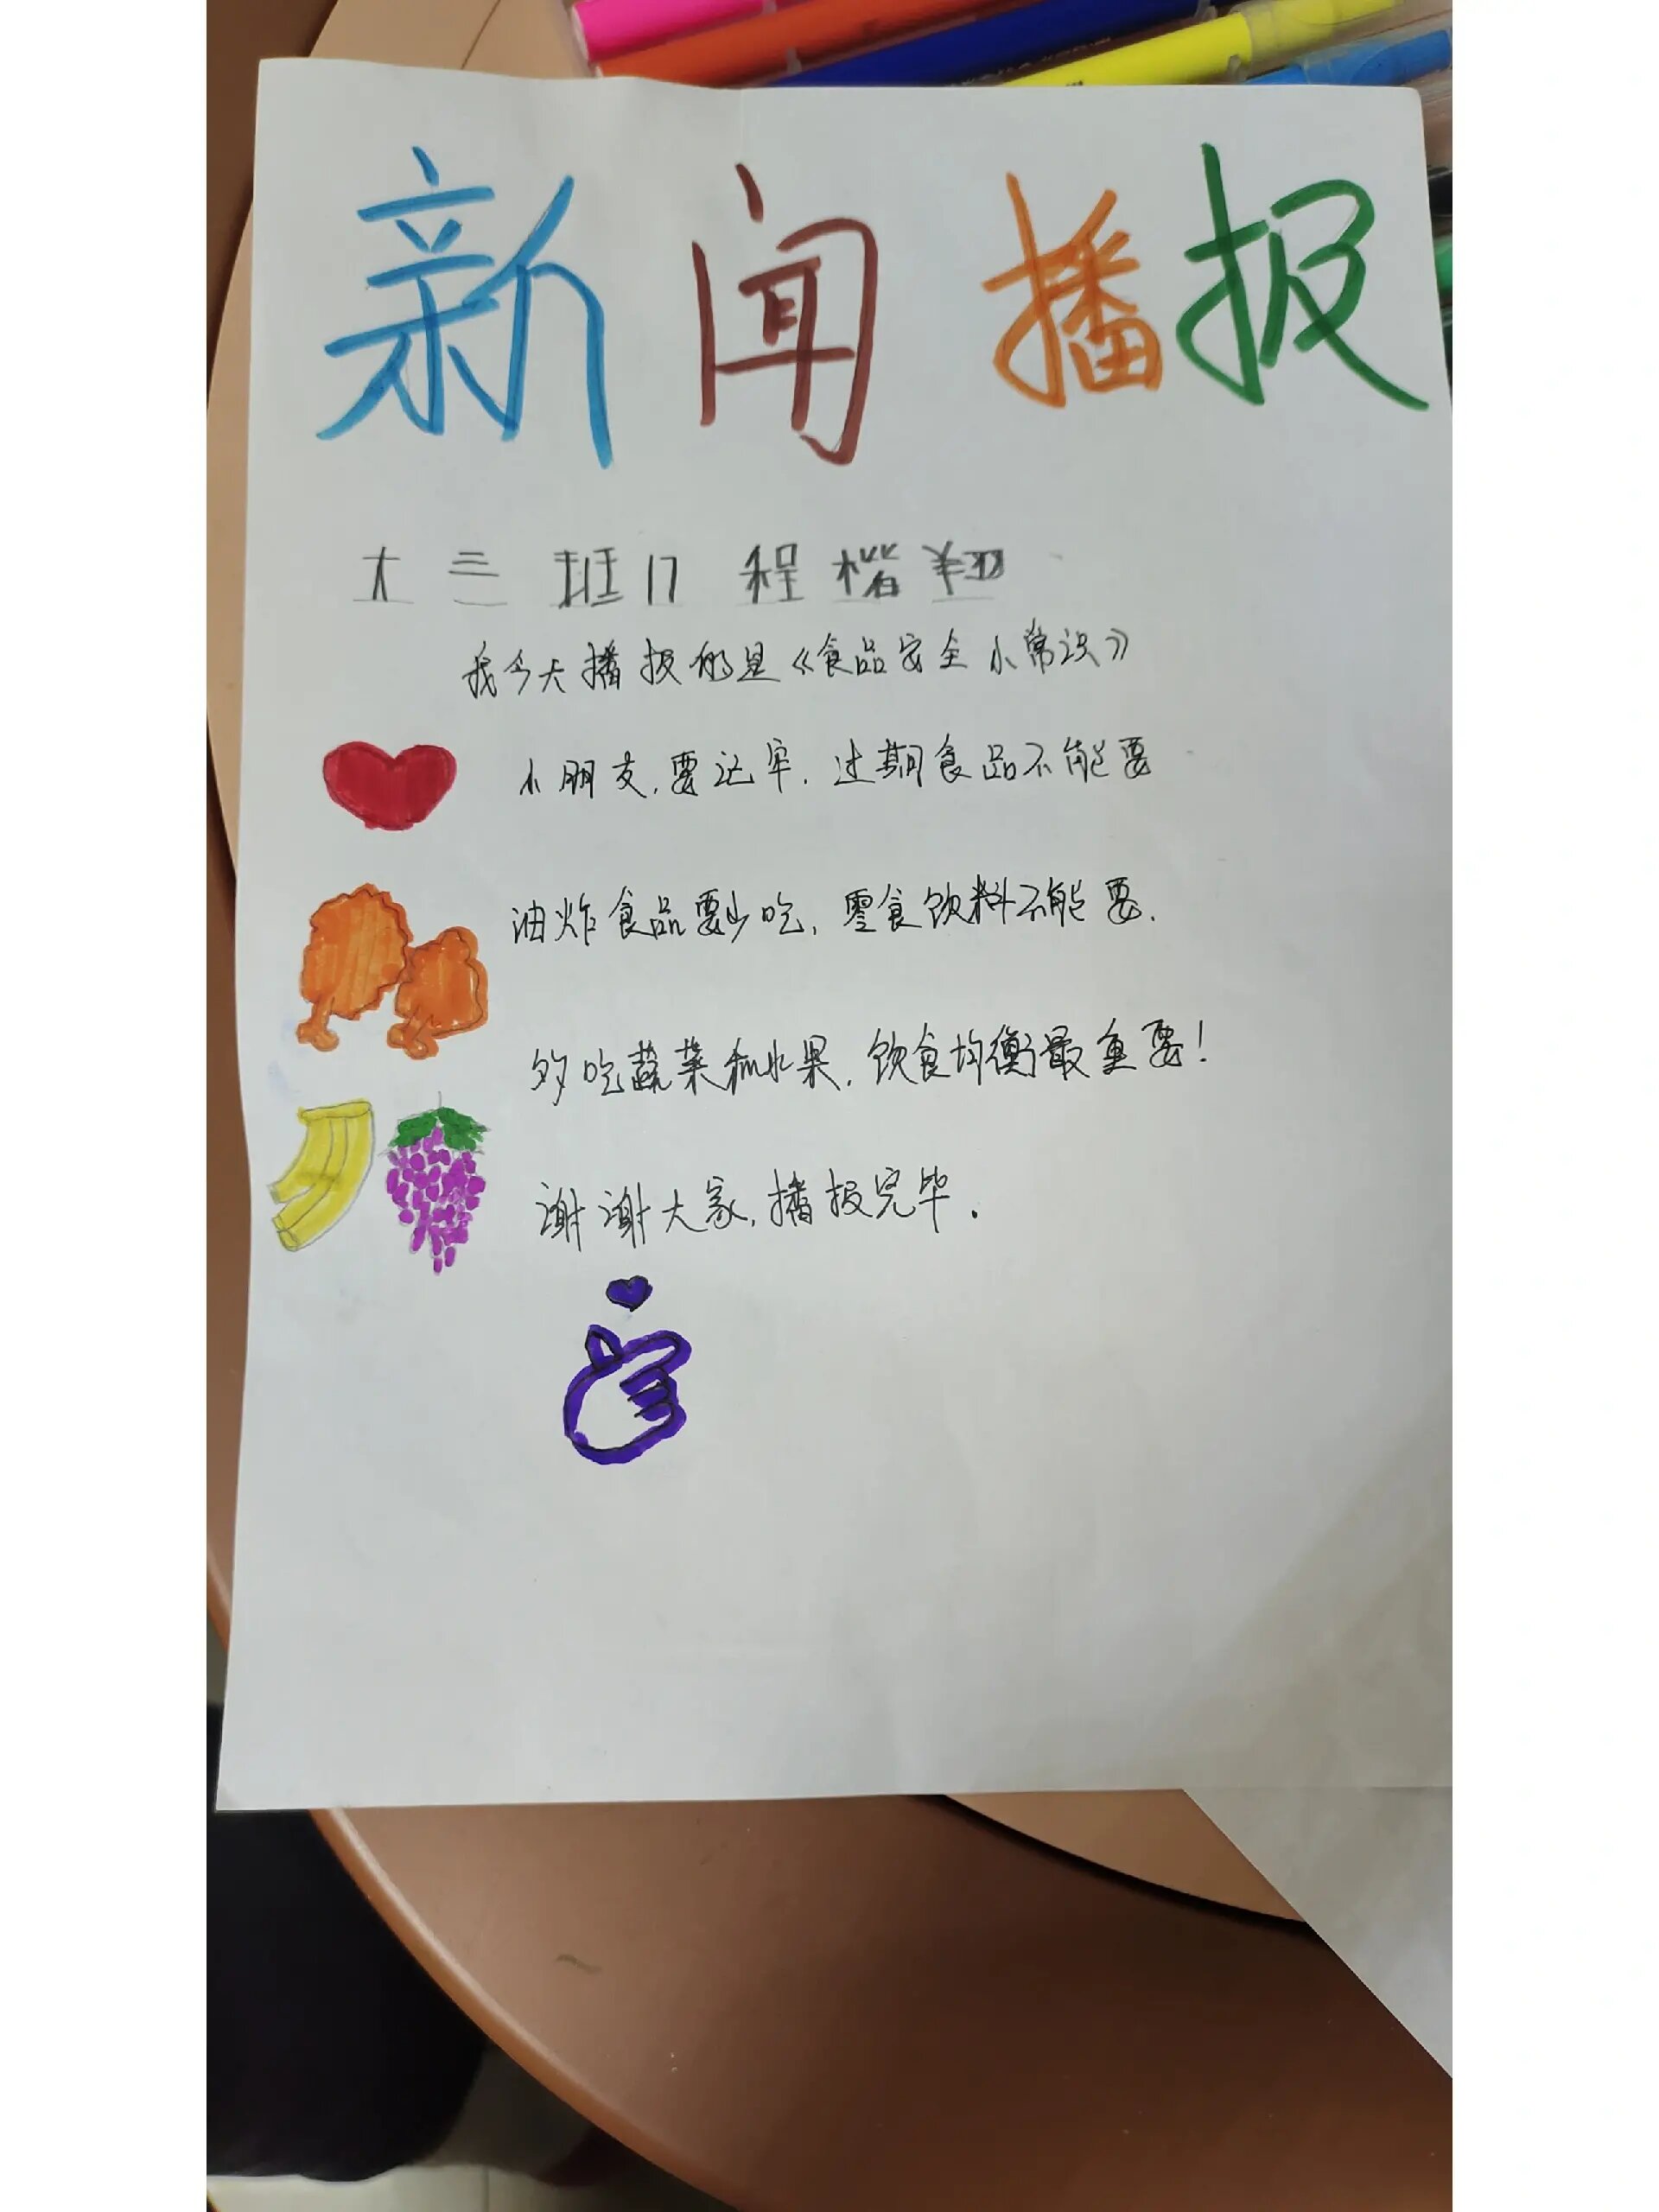 新闻播报
大三班17 程楷翔
我今天播报的是《食品安全小常识》
小朋友,要记牢,过期食品不能要
油炸食品要少吃,零食饮料不能要.
多吃蔬菜和水果,饮食均衡最重要!
谢谢大家,播报完毕.